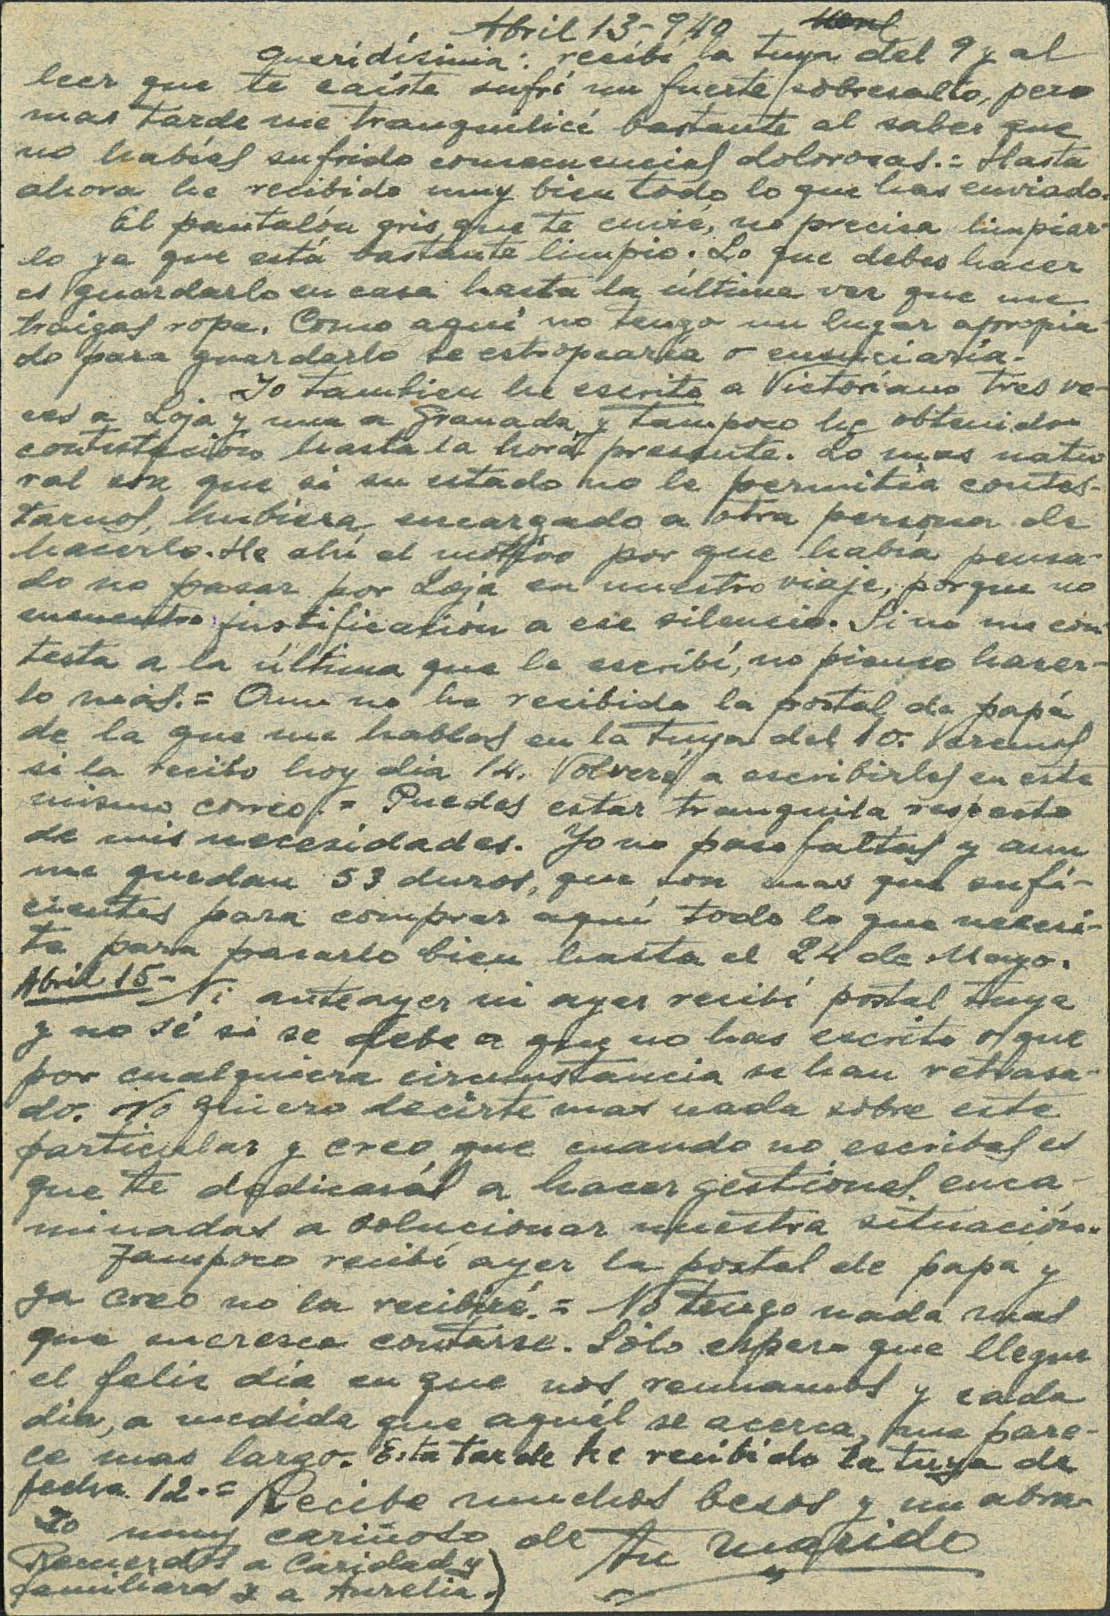 Abril 13-940
Queridísima: recibí la tuya del 9 y al
leer que te caiste sufrí un fuerte sobresalto, pero
mas tarde me tranquilicé bastante al saber que
no habías sufrido consecuencias dolorosas.= Hasta
ahora he recibido muy bien todo lo que has enviado.
El pantalón gris que te envié, no precisa limpiar-
lo ya que está bastante limpio. Lo que debes hacer
es guardarlo en casa hasta la última vez que me
traigas ropa. Como aquí no tengo un lugar apropia
do para guardarlo se estropearía o ensuciaría.
Yo tambien he escrito a Victoriano tres ve-
ces a Loja y una a Granada, y tampoco he obtenido
contestación hasta la hora presente. Lo mas natu
ral son que si su estado no le permitía contes-
tarnos, hubiera encargado a otra persona de
hacerlo. He ahí el motivo por que había pensa-
do no pasar por Loja en nuestro viaje, porque no
encuentro justificación a ese silencio. Si no me con
testa a la última que le escribí, no pienso hacer-
lo más.= Aun no he recibido la postal de papá
de la que me hablas en la tuya del 10. Veremos
si la recibo hoy día 14. Volveré a escribirles en este
mismo correo.= Puedes estar tranquila respecto
de mis necesidades. Yo no paso faltas y aun
me quedan 53 duros, que son mas que sufi-
cientes para comprar aquí todo lo que necesi-
te para pasarlo bien hasta el 24 de Mayo.
Abril 15- Ni anteayer ni ayer recibí postal tuya
y no sé si se debe a que no has escrito o que
por cualquiera circunstancia se han retrasa-
do. No quiero decirte mas nada sobre este
particular y creo que cuando no escribes es
que te dedicarás a hacer gestiones enca-
minadas a solucionar nuestra situación.
Tampoco recibí ayer la postal de papá y
ya creo no la recibiré.= No tengo nada mas
que meresca contarse. Sólo espero que llegue
el feliz día en que nos reunamos y cada
día, a medida que aquél se acerca, me pare-
ce mas largo. Esta tarde he recibido la tuya de
fecha 12.= Recibe muchos besos y un abra-
zo muy cariñoso de tu marido
Recuerdos a Caridad y
familiares y a Aurelia.)